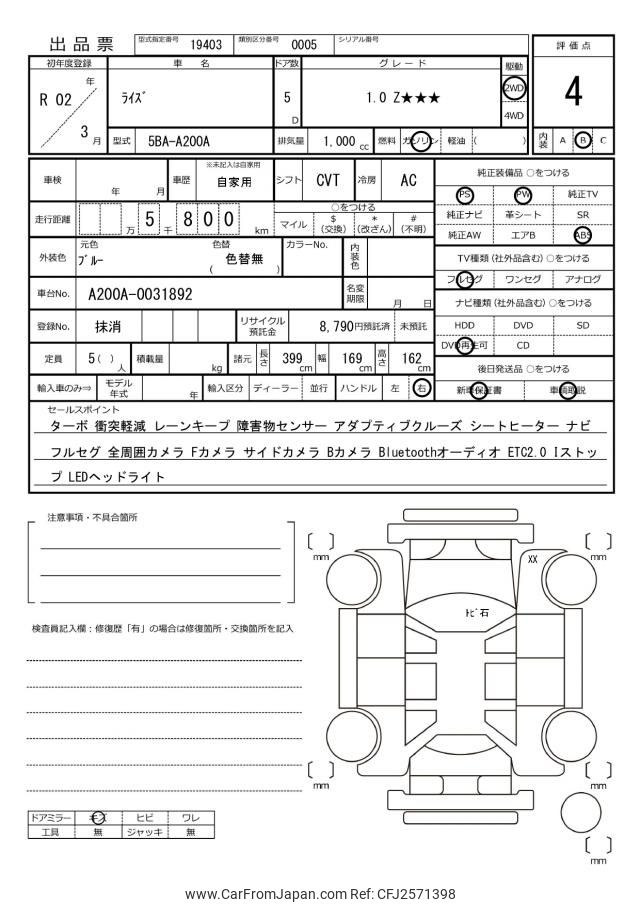 出品票 型式指定番号 19403 類別区分番号 0005 シリアル番号
評価点
4
内装 A B C
初年度登録 車名 ドア数 グレード 駆動
R 02 年 3 月
ﾗｲｽﾞ 5 D 1.0 Z★★★ 2WD 4WD
型式 5BA-A200A 排気量 1,000 cc 燃料 ガソリン 軽油 ( )
車検 年 月 車歴 ※未記入は自家用 自家用 シフト CVT 冷房 AC
走行距離 万 5 千 8 0 0 km
○をつける
マイル $(交換) *(改ざん) #(不明)
外装色 元色 ﾌﾞﾙｰ 色替 ( 色替無 ) カラーNo. 内装色
車台No. A200A-0031892 名変期限 月 日
登録No. 抹消 リサイクル預託金 8,790円預託済 未預託
定員 5 ( ) 人 積載量 kg 諸元 長さ 399 cm 幅 169 cm 高さ 162 cm
輸入車のみ⇒ モデル年式 年 輸入区分 ディーラー 並行 ハンドル 左 右
純正装備品 ○をつける
PS PW 純正TV
純正ナビ 革シート SR
純正AW エアB ABS
TV種類 (社外品含む) ○をつける
フルセグ ワンセグ アナログ
ナビ種類 (社外品含む) ○をつける
HDD DVD SD
DVD再生可 CD
後日発送品 ○をつける
新車保証書 車輌取説
セールスポイント
ターボ 衝突軽減 レーンキープ 障害物センサー アダプティブクルーズ シートヒーター ナビ
フルセグ 全周囲カメラ Fカメラ サイドカメラ Bカメラ Bluetoothオーディオ ETC2.0 Iストッ
プ LEDヘッドライト
注意事項・不具合箇所
検査員記入欄：修復歴「有」の場合は修復箇所・交換箇所を記入
mm
mm
XX
ﾄﾋﾞ石
mm
mm
mm
ドアミラー キズ ヒビ ワレ
工具 無 ジャッキ 無
www.CarFromJapan.com Ref: CFJ2571398